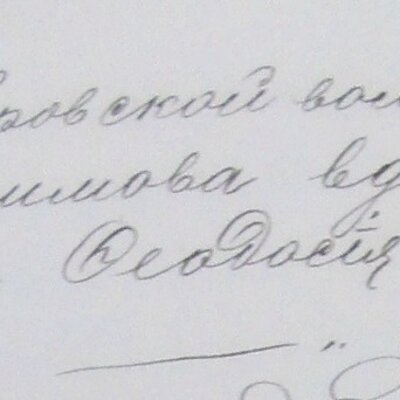 ровской вол
имова вд
Ѳеодосія
"